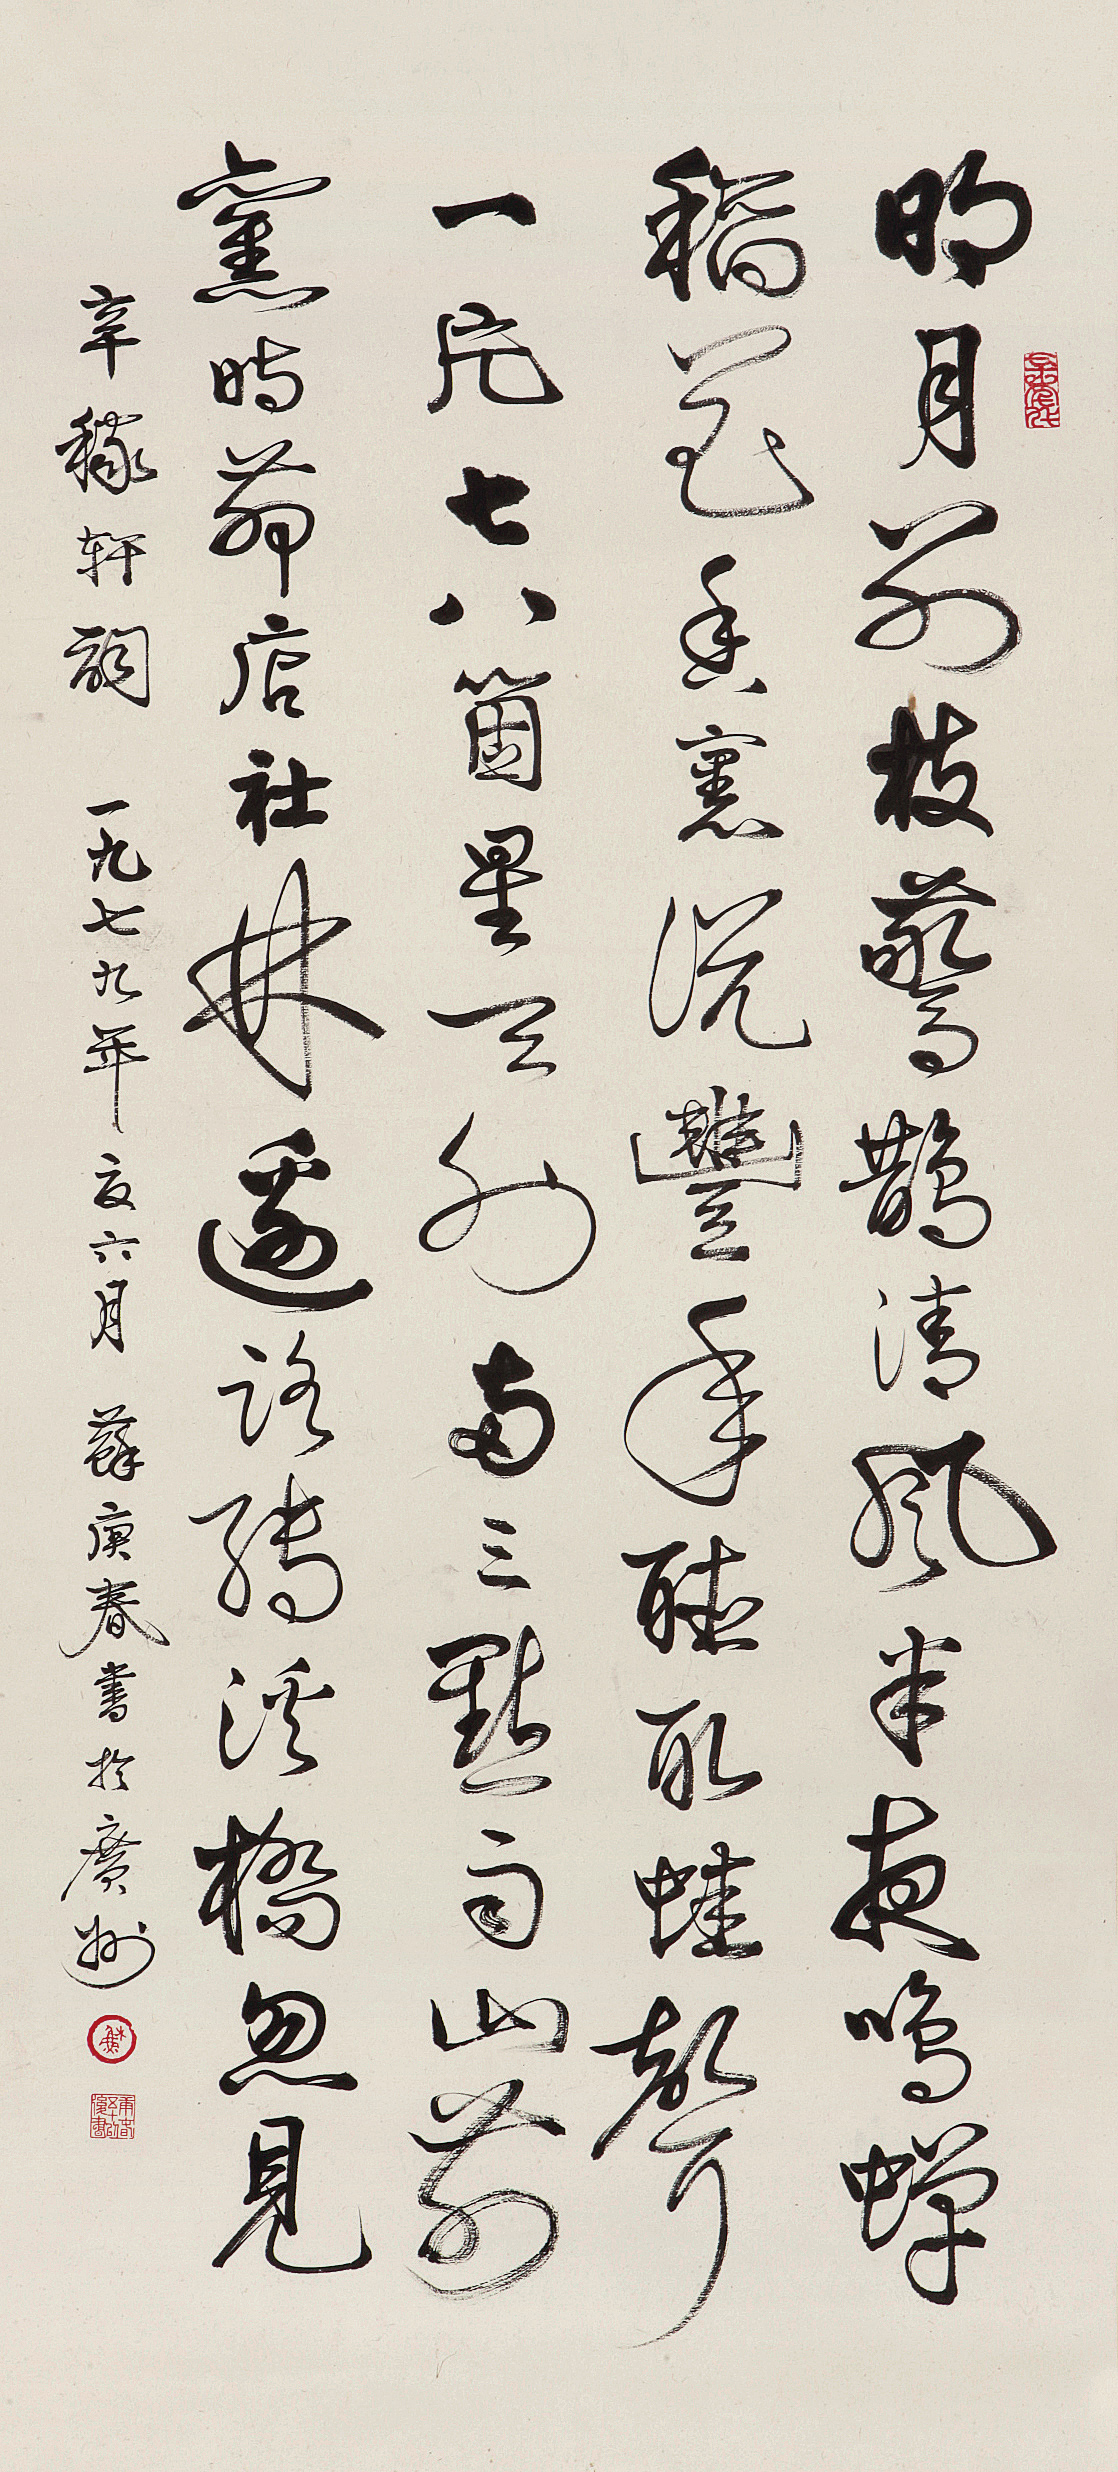 明月別枝驚鵲清風半夜鳴蟬
稻花香裏說豐年聽取蛙聲
一片七八箇星天外兩三點雨山前
舊時茆店社林邊路轉溪橋忽見
辛稼軒詞 一九七九年夏六月 蘇庚春書於廣州
蘇